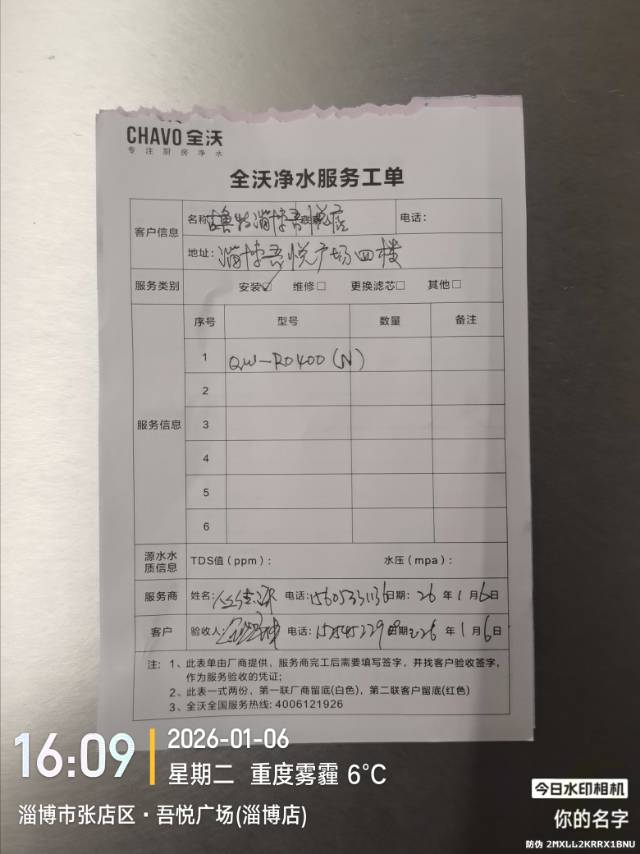 CHAVO 全沃
专注厨房净水
全沃净水服务工单
客户信息
名称: 淄博吾悦店 电话:
地址: 淄博吾悦广场四楼
服务类别 安装☑ 维修□ 更换滤芯□ 其他□
服务信息
序号 型号 数量 备注
1 QW-RO400(N)
2
3
4
5
6
源水水质信息 TDS值(ppm): 水压(mpa):
服务商 姓名: 电话: 日期: 26 年 1 月 6 日
客户 验收人: 电话: 日期: 26 年 1 月 6 日
注: 1、此表单由厂商提供,服务商完工后需要填写签字,并找客户验收签字,
作为服务验收的凭证;
2、此表一式两份,第一联厂商留底(白色),第二联客户留底(红色)
3、全沃全国服务热线: 4006121926
16:09
2026-01-06
星期二 重度雾霾 6°C
淄博市张店区·吾悦广场(淄博店)
今日水印相机
你的名字
防伪 2MXLL2KRRX1BNU